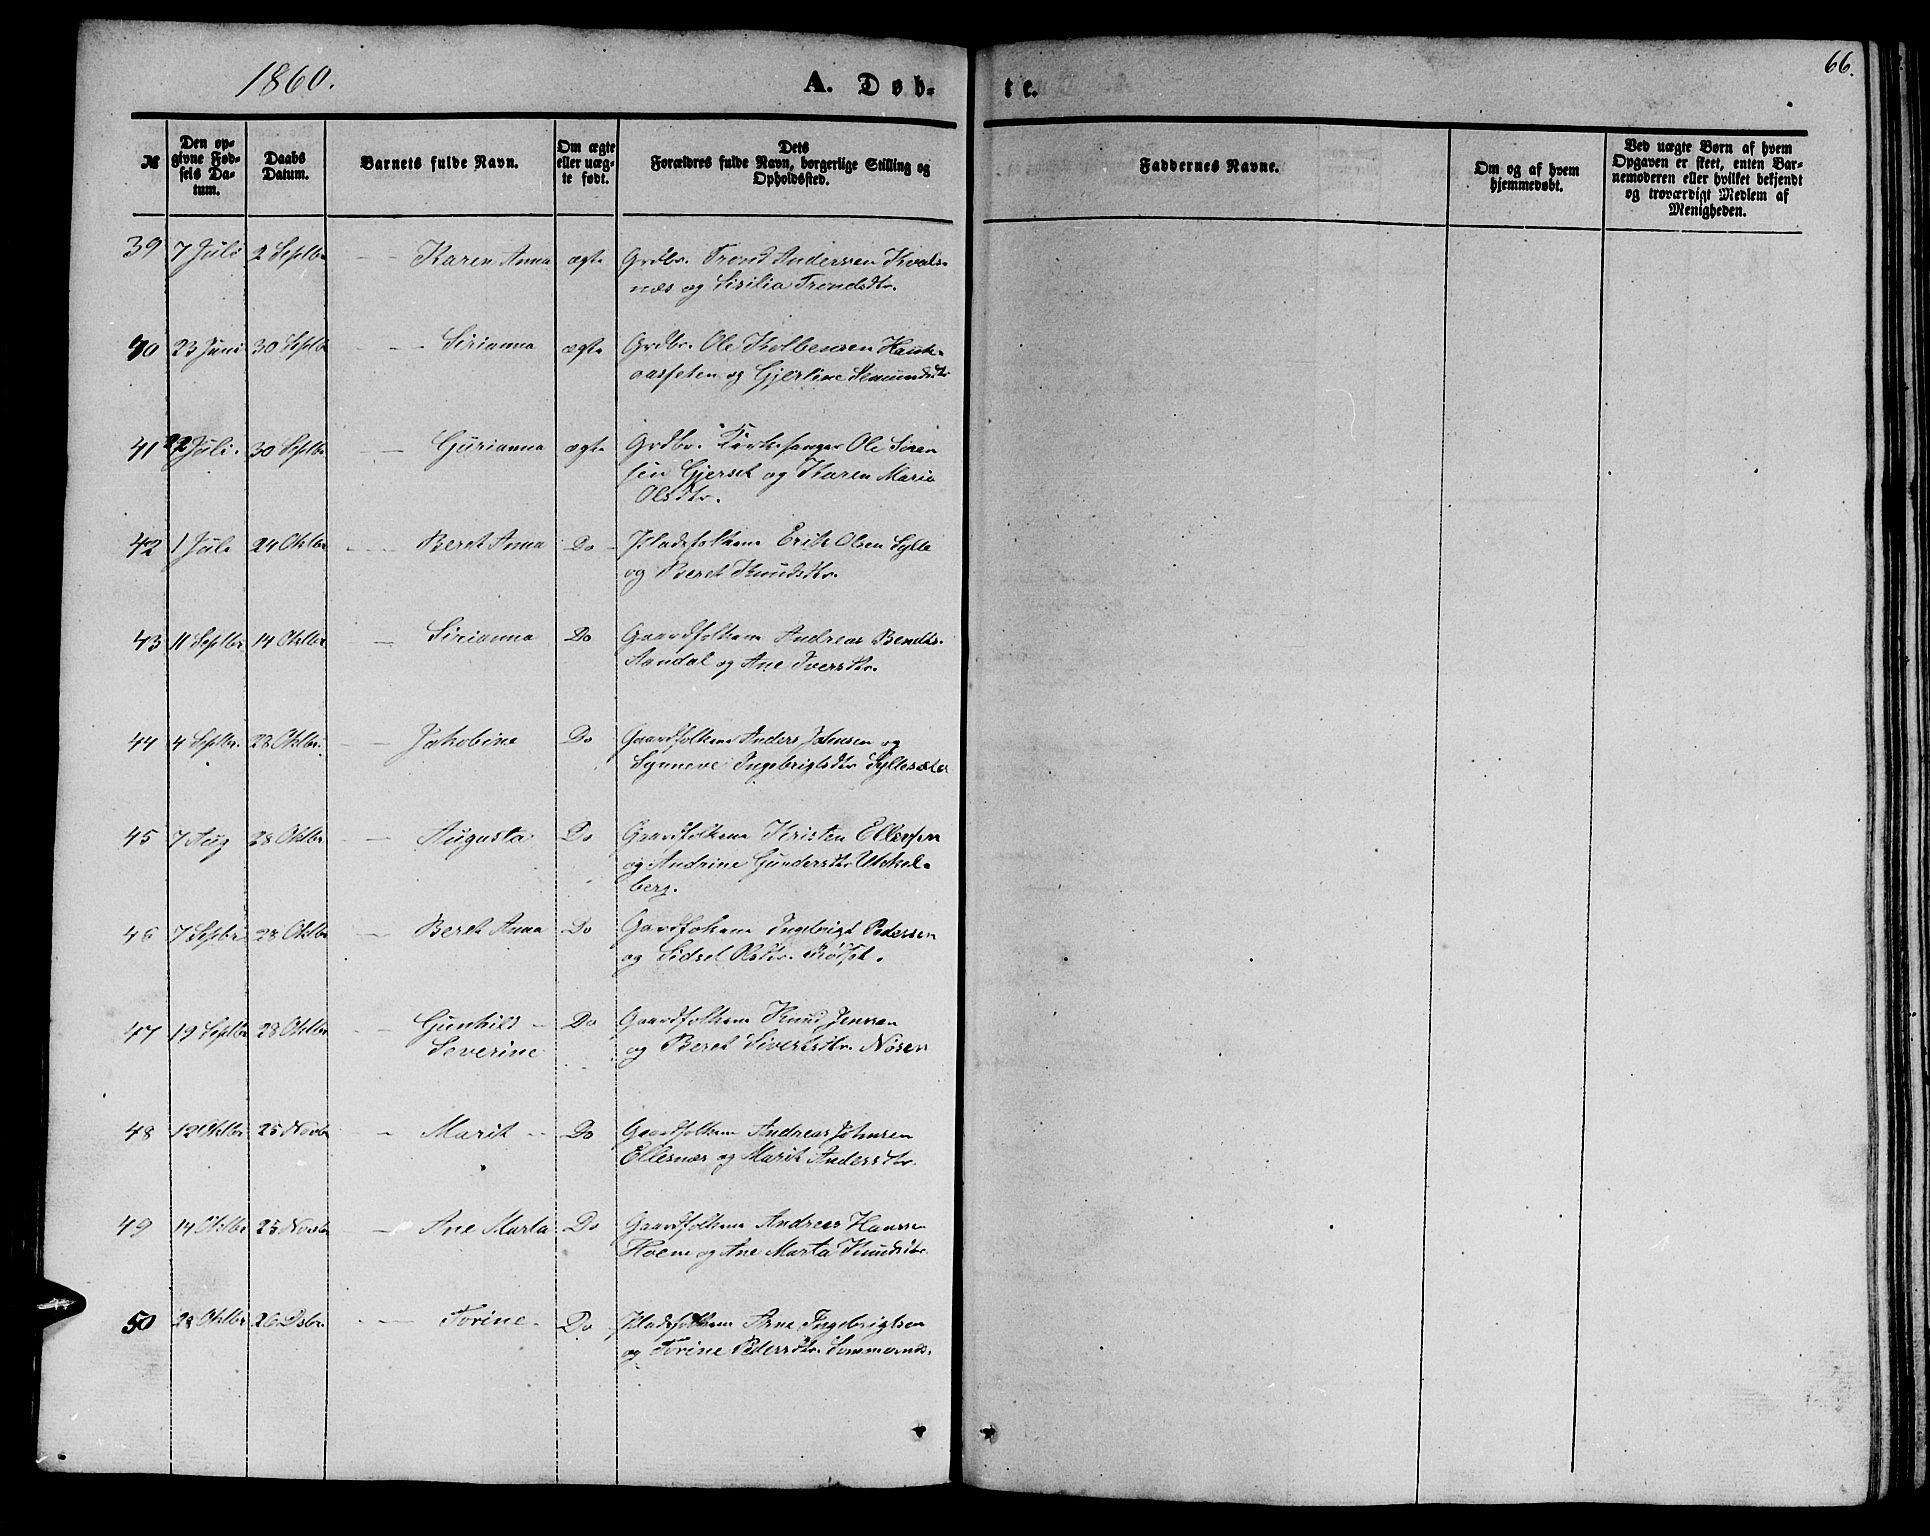 1860.
A. Døb-
te.
66.
№
Den op-
givne Fød-
sels Da-
tum.
Daabs
Datum.
Barnets fulde Navn.
Om ægte
eller uæg-
te født.
Dets
Forældres fulde Navn, borgerlige Stilling og
Opholdssted.
Faddernes Navne.
Om og af hvem
hjemmedøbt.
Ved uægte Børn af hvem
Opgaven er skeet, enten Bar-
nemoderen eller hvilket bekjendt
og troværdigt Medlem af
Menigheden.
39 7 Juli 2 Septbr Karen Anna ægte Grdbr. Trond Andersen Kvals-
næs og Sisilia Trondsdtr.
40 23 Juni 30 Septbr Sirianna ægte Grdbr. Ole Kolbensen Hauk-
aasfeten og Gjertine
41 22 Juli. 30 Septbr Gurianna ægte Grdbr. Kirkesanger Ole Soren
sen Gjerset og Karen Marie
Olsdtr.
42 1 Juli 24 Oktbr Beret Anna Do Pladsfolkene Erik Olsen Sylte
og Beret Knudsdtr.
43 11 Septbr 14 Oktbr Sirianna Do Gaardfolkene Andreas Bendts.
Aandal og Ane Iversdtr.
44 4 Septbr. 28 Oktbr. Jakobine Do Gaardfolkene Anders Johnsen og
Synneve Ingebrigtsdtr Syltesæter
45 7 Aug 28 Oktbr Augusta Do Gaardfolkene Kristen Ellefsen
og Andrine Gundersdtr Ukkel-
berg.
46 7 Septbr 28 Oktbr Beret Anna Do Gaardfolkene Ingebrigt Pedersen
og Sidsel Olsdtr.
47 19 Septbr 28 Oktbr Gunhild Do Gaardfolkene Knud Jensen
Severine og Beret Sivertsdtr. Nøsen
48 12 Oktbr 25 Novbr Marit Do Gaardfolkene Andreas Johnsen
Ellesnæs og Marit Andersdtr.
49 14 Oktbr 25 Novbr Ane Marta Do Gaardfolkene Andreas Hanssen
Hoem og Ane Marta Knudsdtr
50 28 Oktbr 26 Dsbr. Torine. Do Pladsfolkene Arne Ingebrigtsen
og Torine Pedersdtr. Sommernæs.